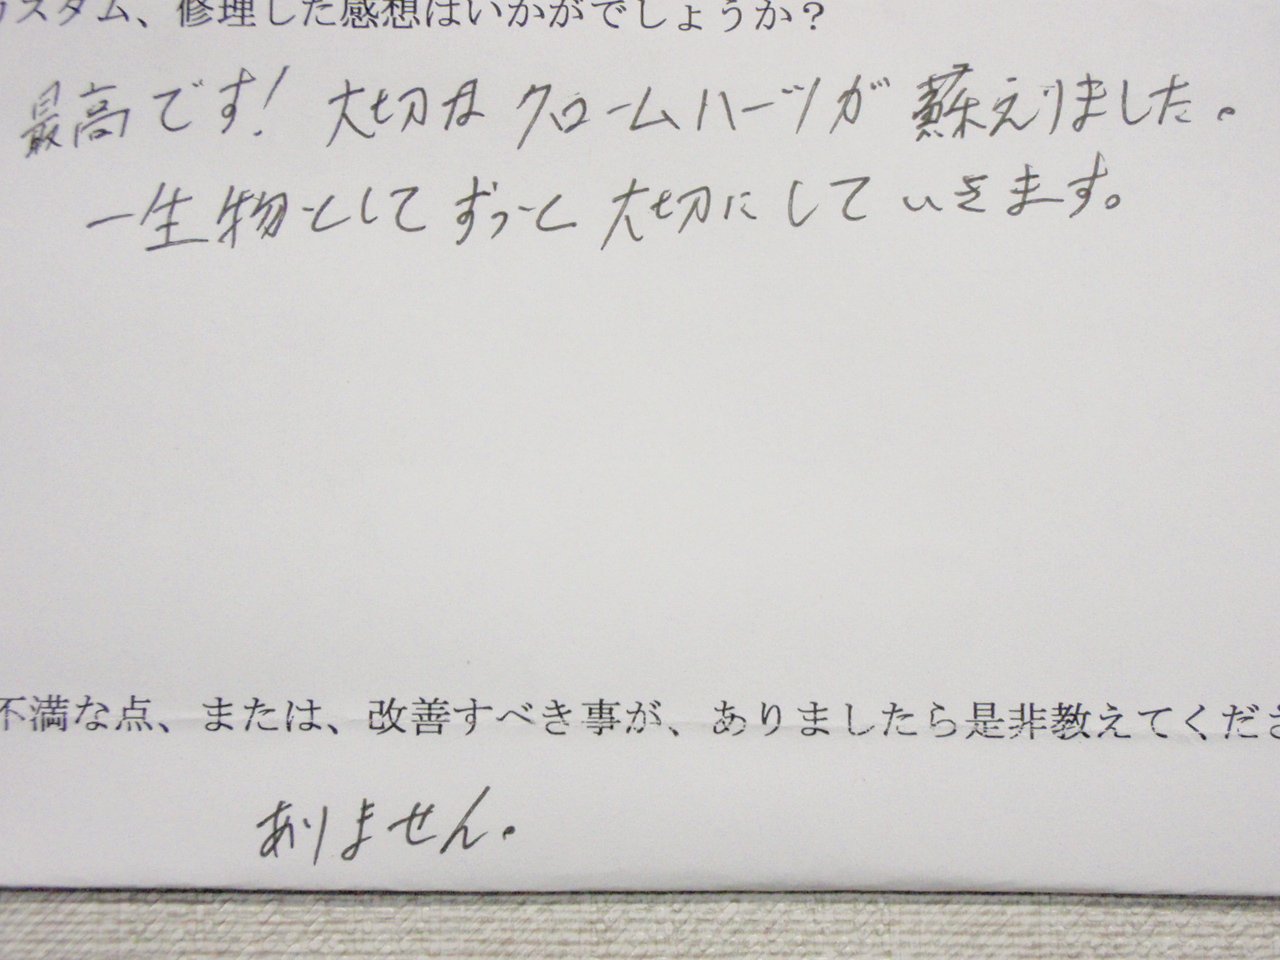 カスタム、修理した感想はいかがでしょうか？
最高です！大切なクロームハーツが蘇えりました。
一生物としてずっと大切にしていきます。
不満な点、または、改善すべき事が、ありましたら是非教えてくださ
ありません。